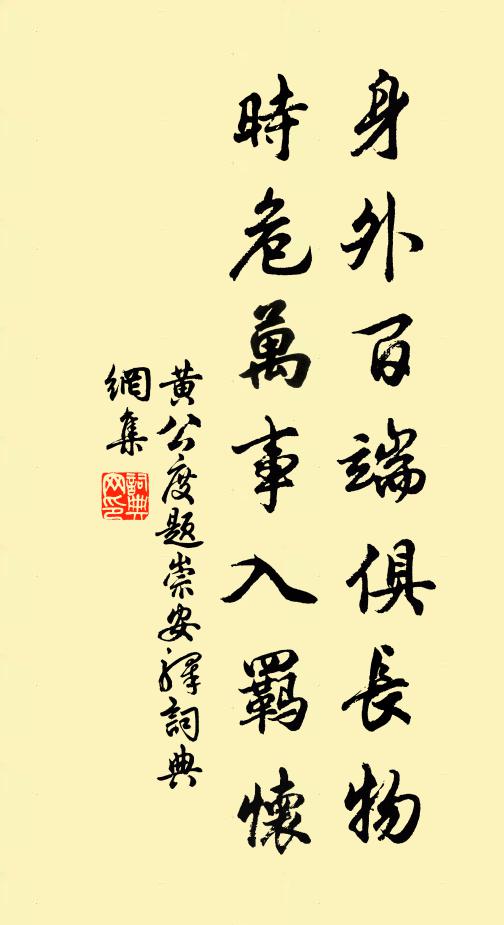 身外百端俱長物
時危萬事入羈懷
黄公度題崇安驛詞典
網集
詞典
网印